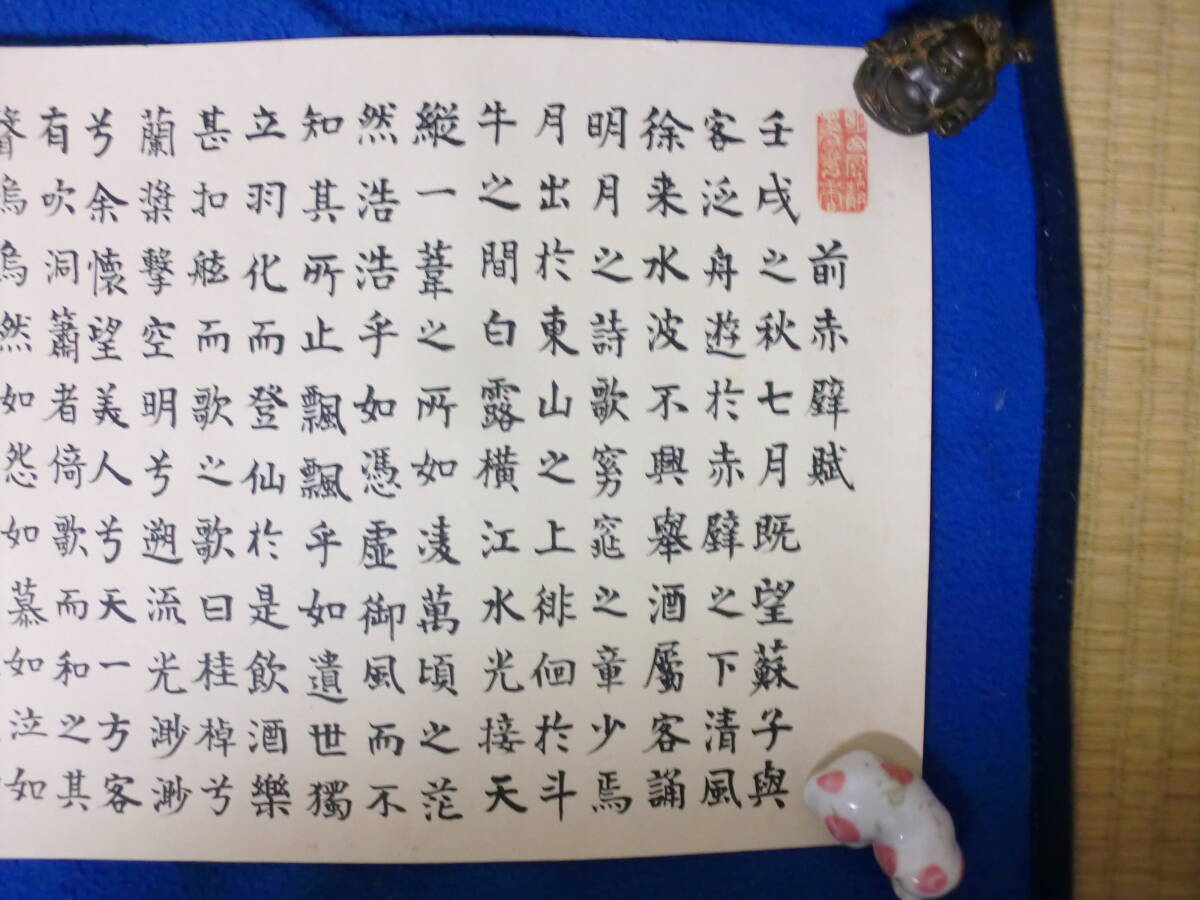 前赤壁賦
壬戌之秋七月既望蘇子與
客泛舟遊於赤壁之下清風
徐来水波不興舉酒屬客誦
明月之詩歌窈窕之章少焉
月出於東山之上徘徊於斗
牛之間白露橫江水光接天
縱一葦之所如凌萬頃之茫
然浩浩乎如憑虛御風而不
知其所止飄飄乎如遺世獨
立羽化而登仙於是飲酒樂
甚扣舷而歌之歌曰桂棹兮
蘭槳擊空明兮遡流光渺渺
兮余懷望美人兮天一方客
有吹洞簫者倚歌而和之其
聲嗚嗚然如怨如慕如泣如